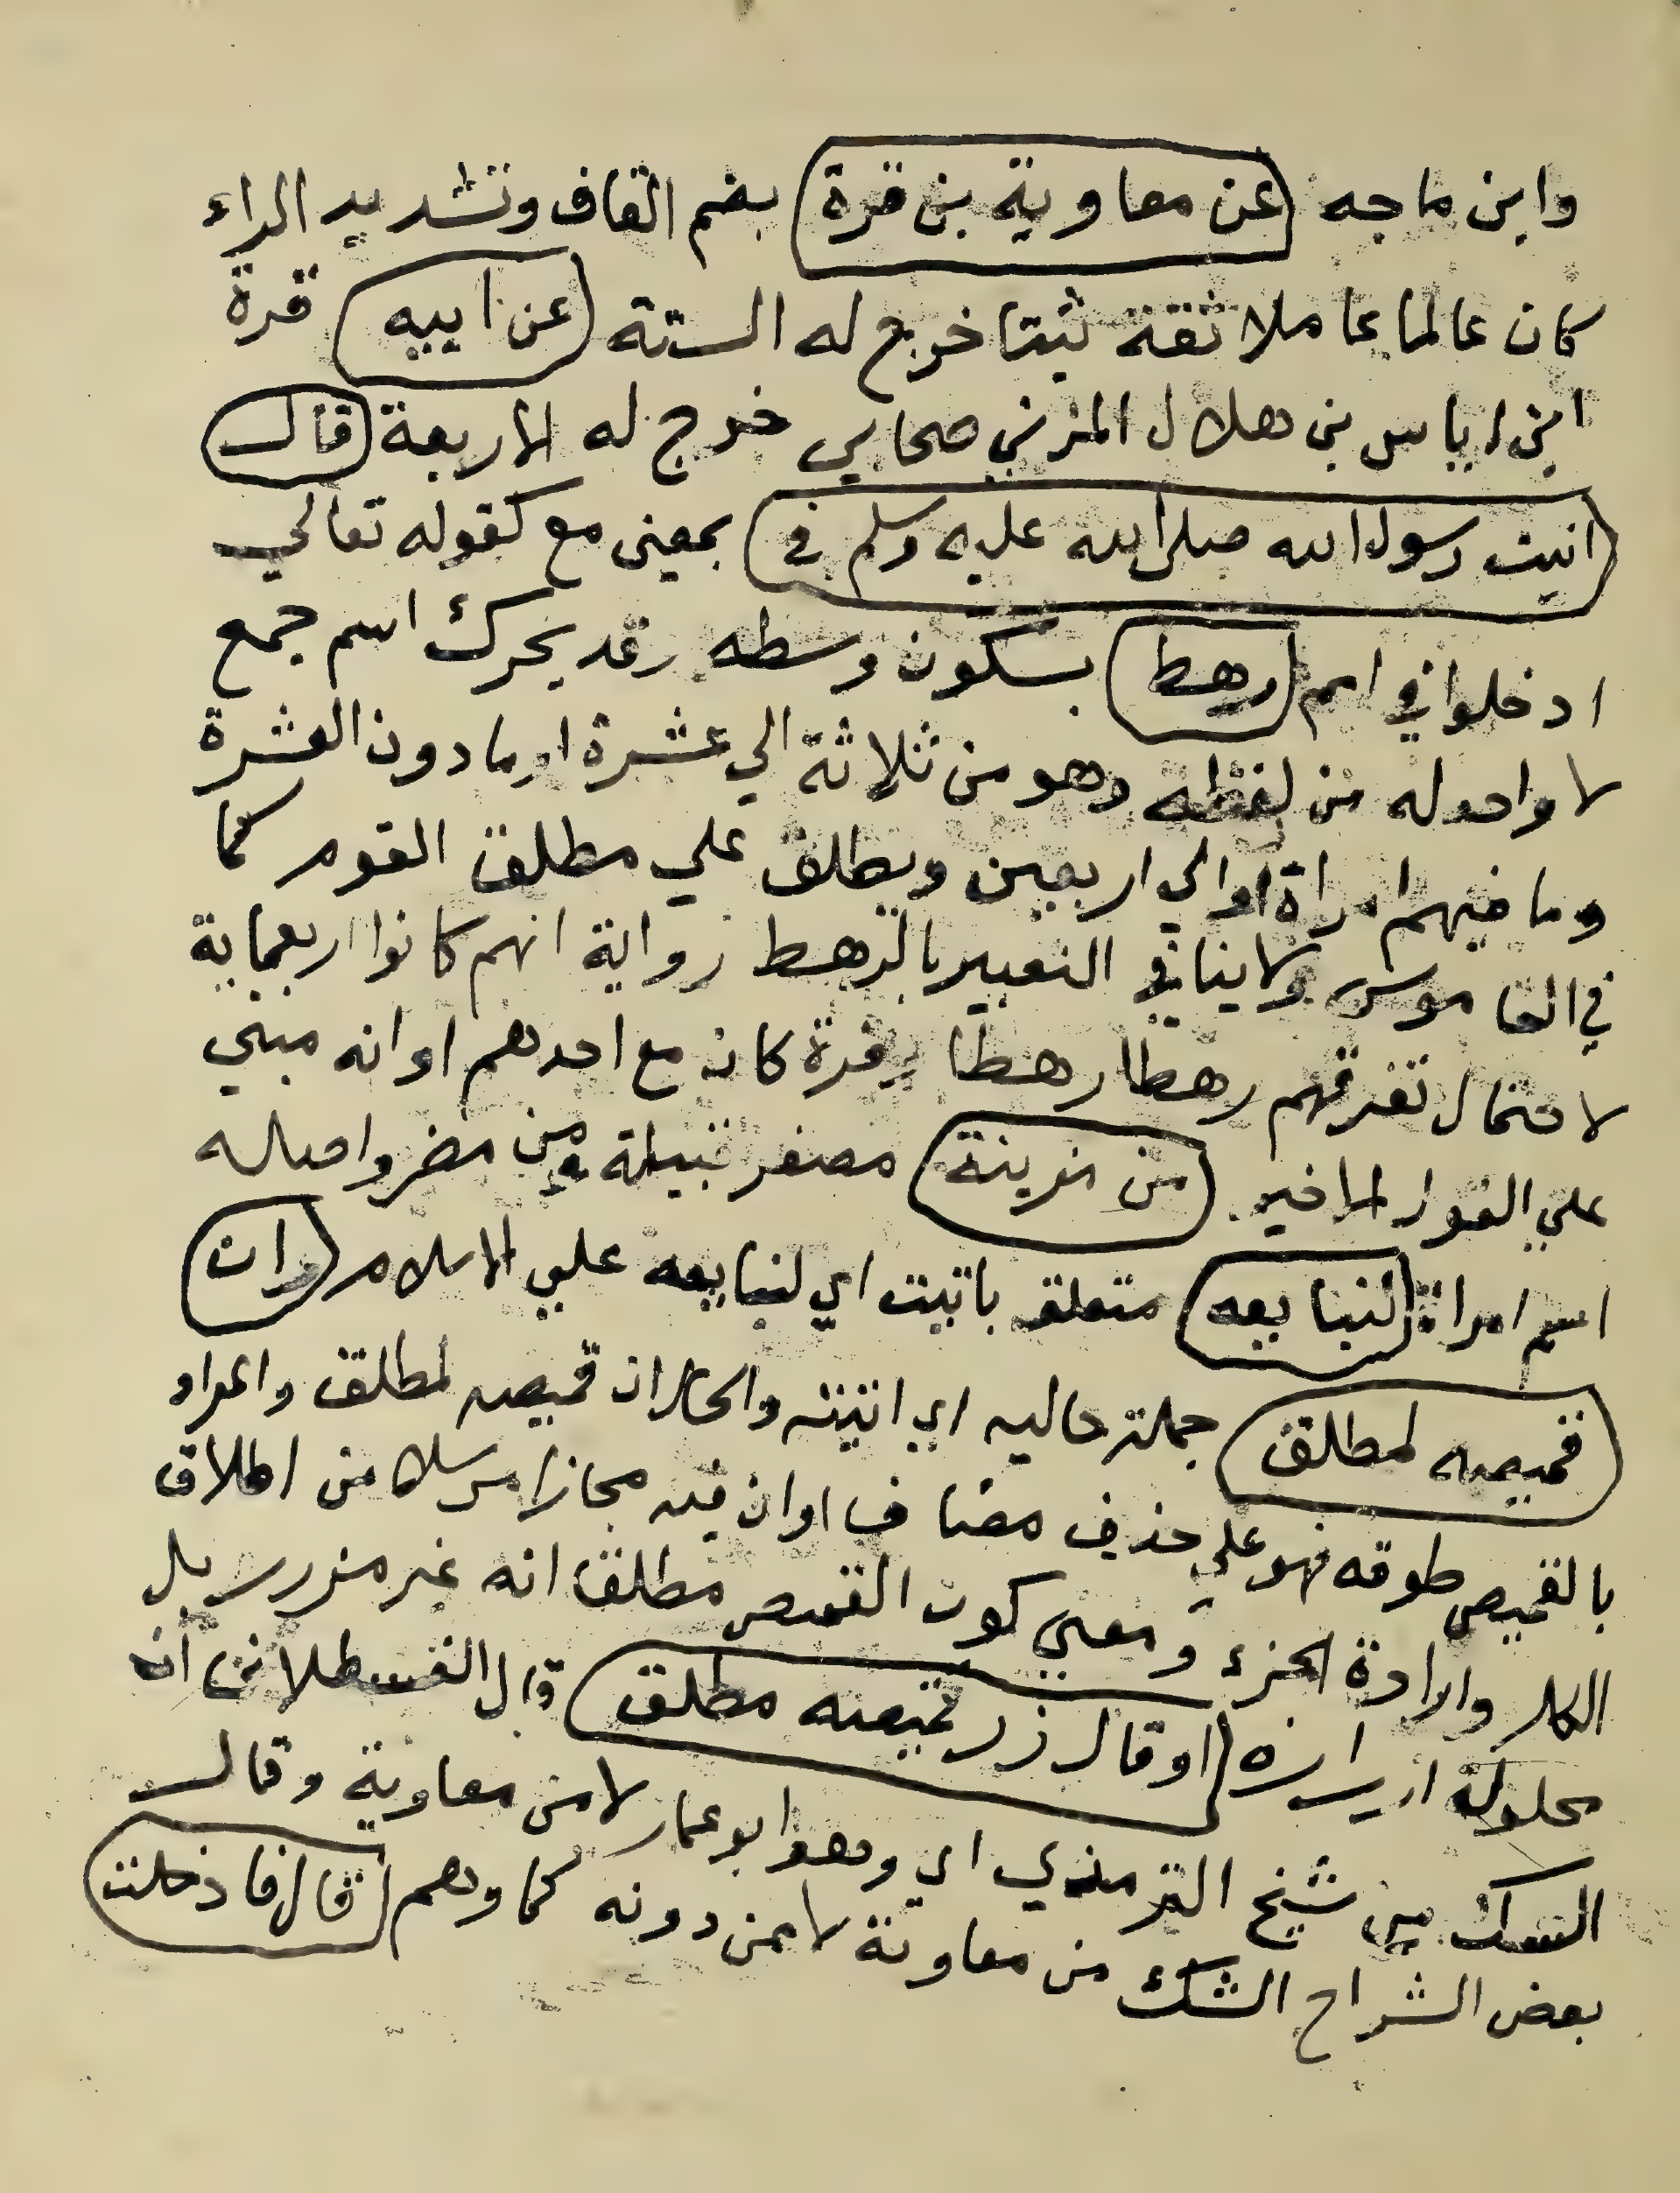 وابن ماجه عن معاوية بن قرة بضم القاف وتشديد الراء
كان عالما عاملا ثقة ثبتا خرج له الستة عن ابيه قرة
ابن اياس بن هلال المزني صحابي خرج له الاربعة قال
اتيت رسول الله صلى الله عليه وسلم في بمعنى مع كقوله تعالي
ادخلوا في امم رهط بسكون وسطه وقد يحرك اسم جمع
لا واحد له من لفظه وهو من ثلاثة الي عشرة او ما دون العشرة
وما فيهم امراة او الي اربعين ويطلق علي مطلق القوم كما
في القاموس ولا ينافي التعبير بالرهط رواية انهم كانوا اربعماية
لاحتمال تفرقهم رهطا رهطا وقرة كان مع احدهم او انه مبني
علي القول الاخير من مزينة مصغر قبيلة من مضر واصله
اسم امراة لنبايعه متعلق باتيت اي لنبايعه علي الاسلام وان
قميصه لمطلق جملة حاليه اي اتيته والحال ان قميصه لمطلق والمراد
بالقميص طوقه فهو علي حذف مضاف او ان فيه مجازا مرسلا من اطلاق
الكل وارادة الجزء ومعني كون القميص مطلق انه غير مزرر بل
محلولة ازراره او قال زر قميصه مطلق قال القسطلاني ان
الشك من شيخ الترمذي اي وهو ابو عمار لا من معاوية وقال
بعض الشراح الشك من معاوية لا عمن دونه كما وهم قال فادخلت